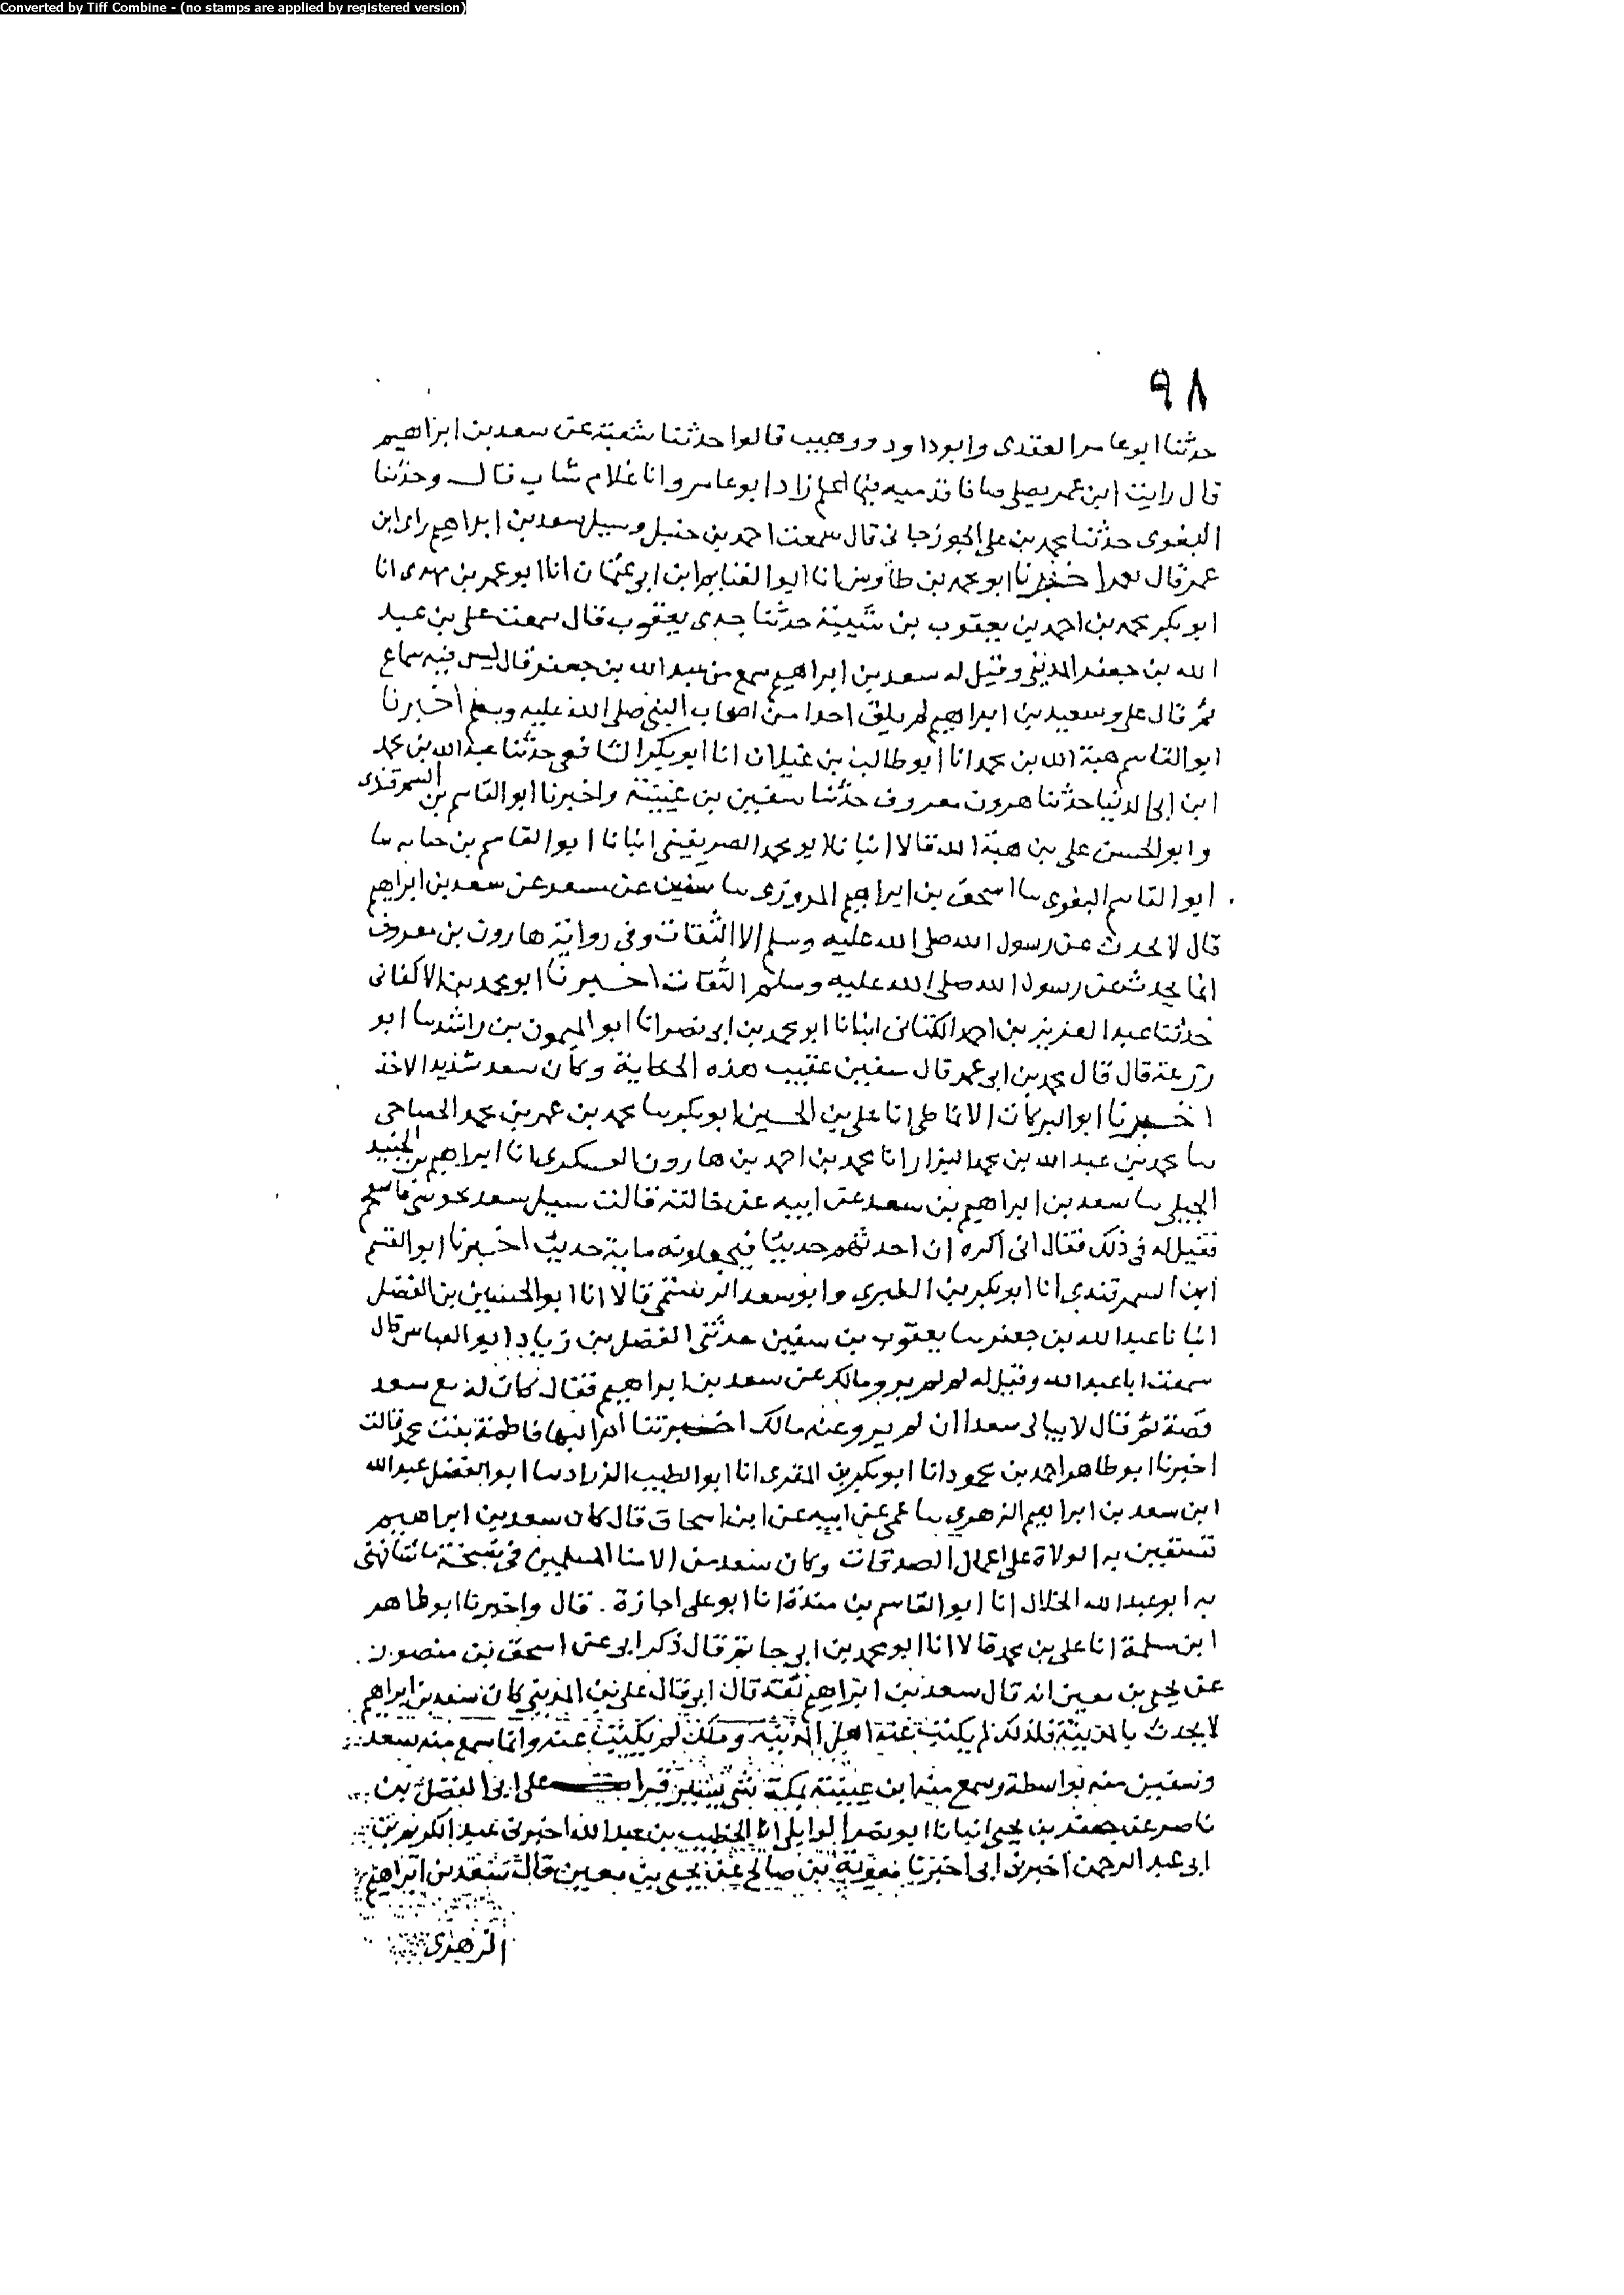 Converted by Tiff Combine - (no stamps are applied by registered version)
٩٨
حدثنا ابو عامر العقدى وابو داود ووهيب قالوا حدثنا شعبة عن سعد بن ابراهيم
قال رايت ابن عمر يصلى صافا قدميه بينهما زاد ابو عامر وانا غلام شاب قال وحدثنا
البغوى حدثنا محمد بن على الجوزجانى قال سمعت احمد بن حنبل وسيل سعد بن ابراهيم راى ابن
عمر قال نعم اخبرنا ابو محمد بن طاوس انا ابو الغنايم ابن ابى عثمان انا ابو عمر بن مهدى انا
ابو بكر محمد بن احمد بن يعقوب بن شيبة حدثنا جدى يعقوب قال سمعت على بن عبد
الله بن جعفر المدينى وقيل له سعد بن ابراهيم سمع من عبد الله بن جعفر قال ليس فيه سماع
ثم قال على وسعيد بن ابراهيم لم يلق احدا من اصحاب النبى صلى الله عليه وسلم اخبرنا
ابو القاسم هبة الله بن محمد انا ابو طالب بن غيلان انا ابو بكر الشافعى حدثنا عبد الله بن محمد
ابن ابى الدنيا حدثنا هرون معروف حدثنا سفين بن عيينة واخبرنا ابو القاسم بن السمرقندى
وابو الحسن على بن هبة الله قالا انبانا ابو محمد الصريفينى انبانا ابو القاسم بن حبابه سا
ابو القاسم البغوى سا اسحق بن ابراهيم المروزى سا سفين عن مسعر عن سعد بن ابراهيم
قال لا يحدث عن رسول الله صلى الله عليه وسلم الا الثقات وفى رواية هارون بن معروف
انما يحدث عن رسول الله صلى الله عليه وسلم الثقات اخبرنا ابو محمد بن الاكفانى
حدثنا عبد العزيز بن احمد الكتانى انبانا ابو محمد بن ابى نصر انا ابو الميمون بن راشد سا ابو
زرعة قال قال محمد بن ابى عمر قال سفين عقيب هذه الحكاية وكان سعد شديد الاخذ
اخبرنا ابو البركات الانماطى انا على بن الحسين ابو بكر سا محمد بن عمر بن محمد
سا محمد بن عبد الله بن محمد البزار انا محمد بن احمد بن هارون العسكرى انا ابراهيم بن الجنيد
سا سعد بن ابراهيم بن سعد عن ابيه عن خالته قالت سيل سعد
فقيل له فى ذلك فقال انى اكره ان احدثهم حديثا فيجعلونه ماية حديث اخبرنا ابو القسم
ابن السمرقندى انا ابو بكر بن الطبرى وابو سعد الرستمى قالا انا ابو الحسين بن الفضل
انبانا عبد الله بن جعفر سا يعقوب بن سفين حدثنى الفضل بن زياد ابو العباس قال
سمعت ابا عبد الله وقيل له لم لم يرو مالك عن سعد بن ابراهيم فقال كان له مع سعد
قصة ثم قال لا يبالى سعد ان لم يرو عنه مالك اخبرتنا ام البها فاطمة بنت محمد قالت
اخبرنا ابو طاهر احمد بن محمود انا ابو بكر بن المقرى انا ابو الطيب الزراد سا ابو الفضل عبد الله
ابن سعد بن ابراهيم الزهرى سا عمى عن ابيه عن ابن اسحاق قال كان سعد بن ابراهيم
تستعين به الولاة على اعمال الصدقات وكان سعد من
به ابو عبد الله الخلال انا ابو القاسم بن مندة انا ابو على اجازة . قال واخبرنا ابو طاهر
ابن سلمة انا على بن محمد قالا انا ابو محمد بن ابى حاتم قال ذكر ابى عن اسحق بن منصور
عن يحيى بن معين انه قال سعد بن ابراهيم ثقة قال ابى قال على بن المدينى كان سعد بن ابراهيم
لا يحدث بالمدينة فلذلك لم يكتب عنه اهل المدينة ومالك لم يكتب عنه وانما سمع منه سعد
وسفين منه بواسطة وسمع منه ابن عيينة بمكة شى يسير قرات على ابى الفضل بن
ناصر عن جعفر بن يحيى انبانا ابو نصر الوايلى انا الخطيب بن عبد الله اخبرنى عبد الكريم بن
ابى عبد الرحمن اخبرنى ابى اخبرنا معوية بن صالح عن يحيى بن معين قال سعد بن ابراهيم
الزهرى